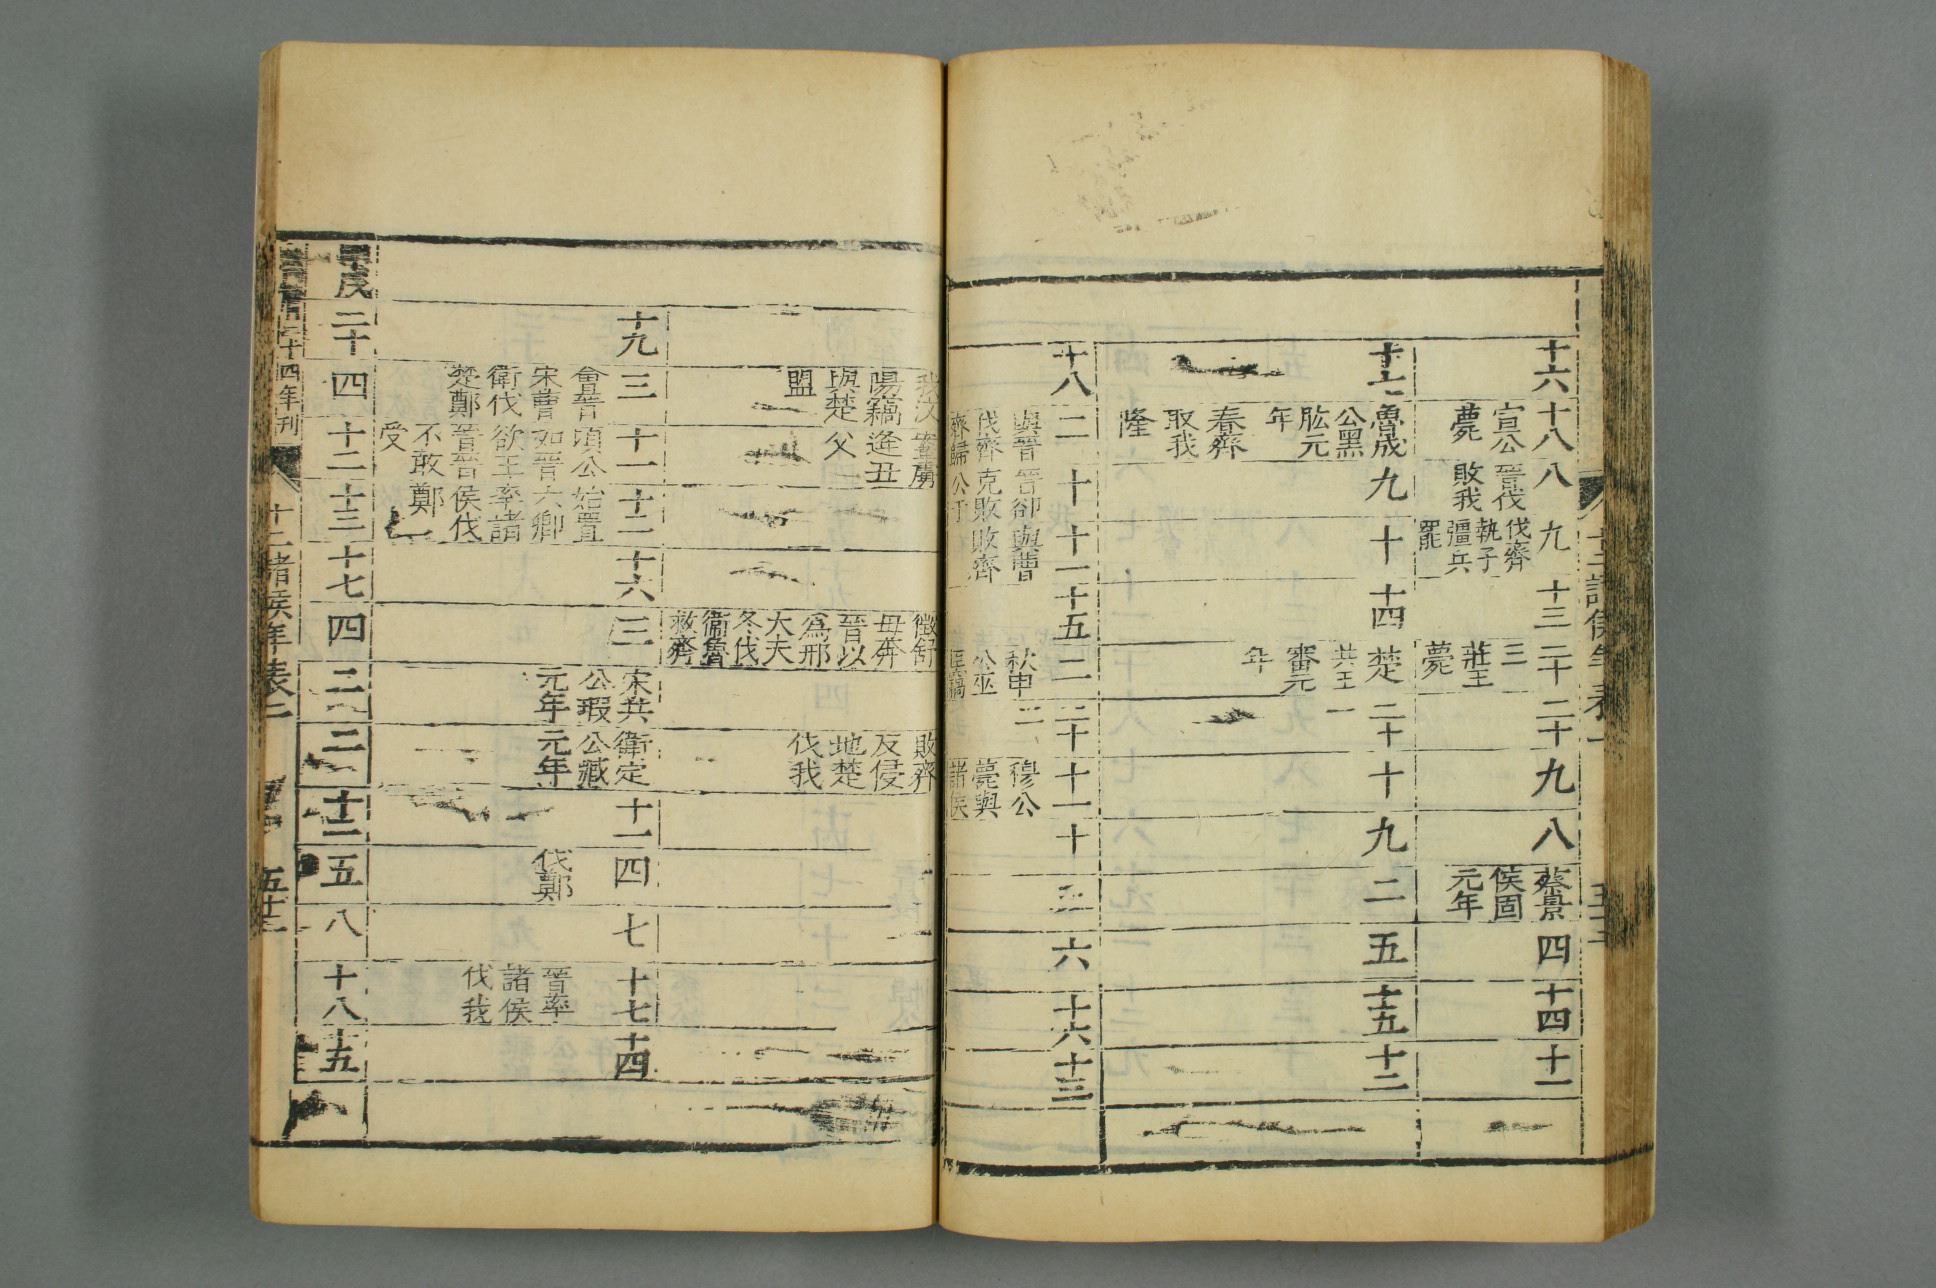 十二諸侯年表二
十六
十八
宣公
薨
八
晉伐
敗我
九
伐齊
執子
彊兵
罷
十三
二十
三
莊王
薨
二十
九
八
蔡景
侯固
元年
四
十四
十一
十七
魯成
公黑
肱元
年
春齊
取我
隆
九
十
十四
楚
共王
審元
年
二十
一
十
九
二
五
十五
十二
十八
二
與晉
伐齊
齊歸
我汶
陽竊
與楚
盟
十
晉郤
克敗
公于
鞌虜
逢丑
父
十一
與曹
敗齊
十五
二
秋申
公巫
臣竊
徵舒
母奔
晉以
爲邢
大夫
冬伐
衛魯
救齊
二十
二
十一
穆公
薨與
諸侯
敗齊
反侵
地楚
伐我
十
三
六
十六
十三
十九
三
會晉
宋曹
衛伐
楚鄭
十一
頃公
如晉
欲王
晉晉
不敢
受
十二
始置
六卿
率諸
侯伐
鄭
十六
三
宋共
公瑕
元年
衛定
公臧
元年
十一
四
伐鄭
七
十七
晉率
諸侯
伐我
十四
甲戌
二十
四
十二
十三
十七
四
二
二
十二
五
八
十八
十五
二十四年刊
十二諸侯年表二
五十二